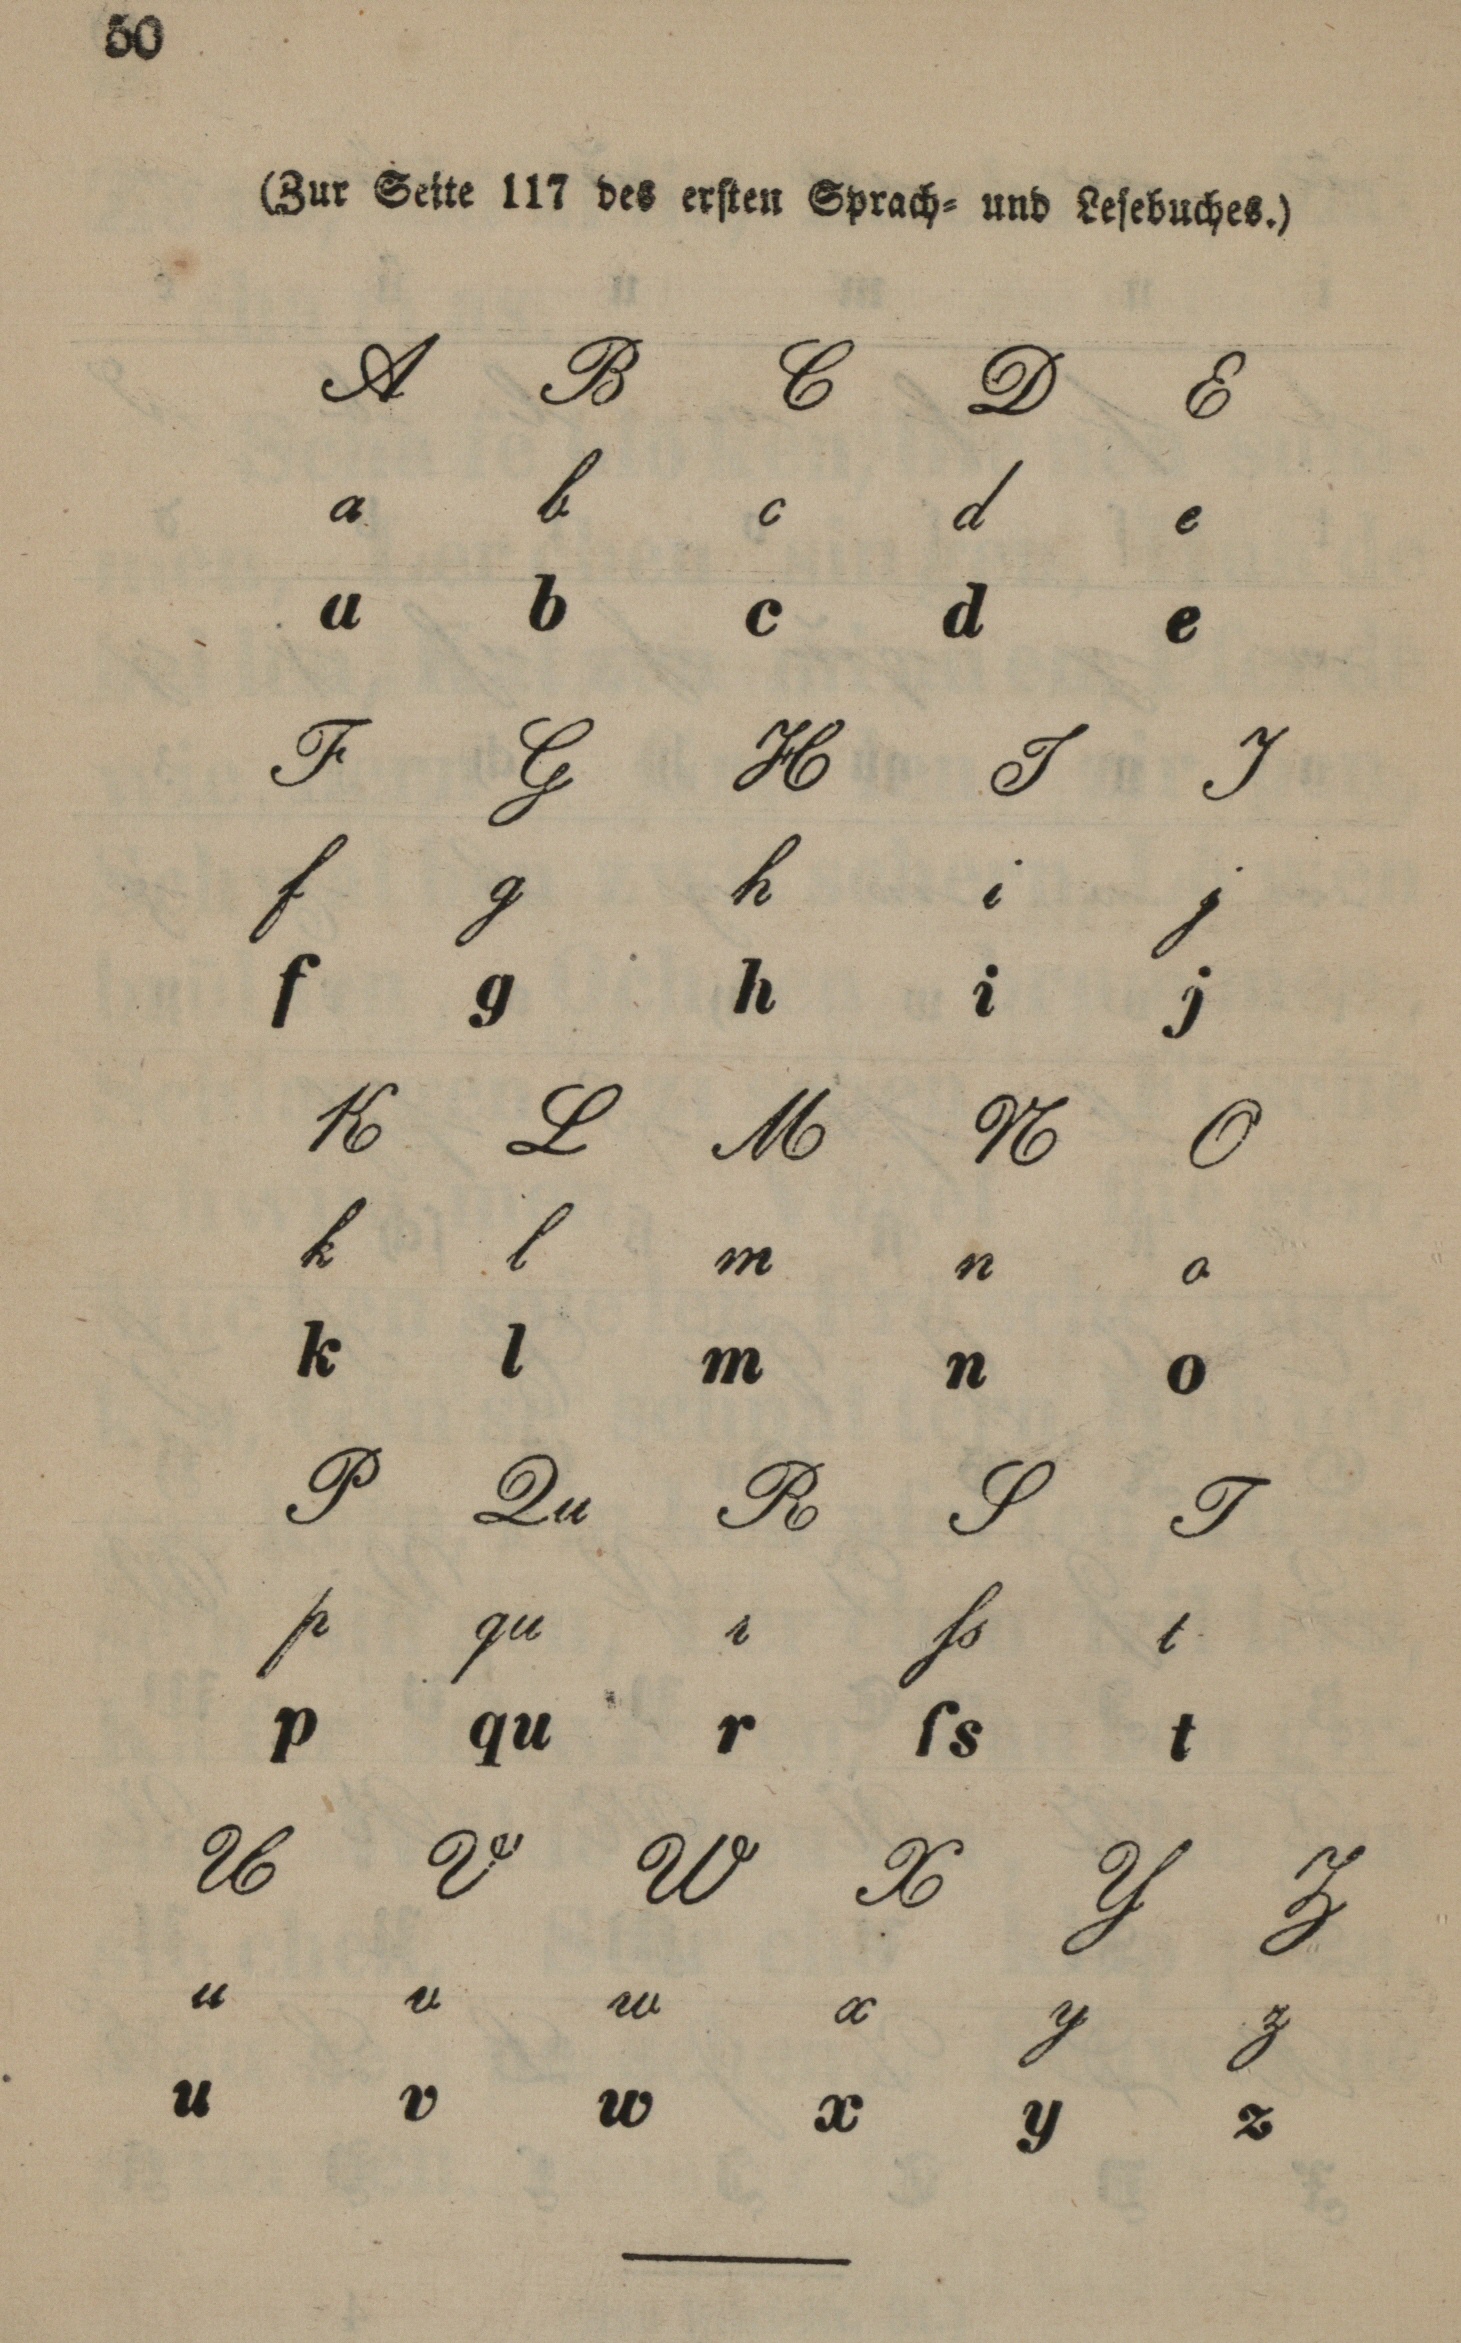 50
(Zur Seite 117 des ersten Sprach- und Lesebuches.)
A B C D E
a b c d e
a b c d e
F G H I J
f g h i j
f g h i j
K L M N O
k l m n o
k l m n o
P Qu R S T
p qu r ſs t
p qu r ſs t
U V W X Y Z
u v w x y z
u v w x y z